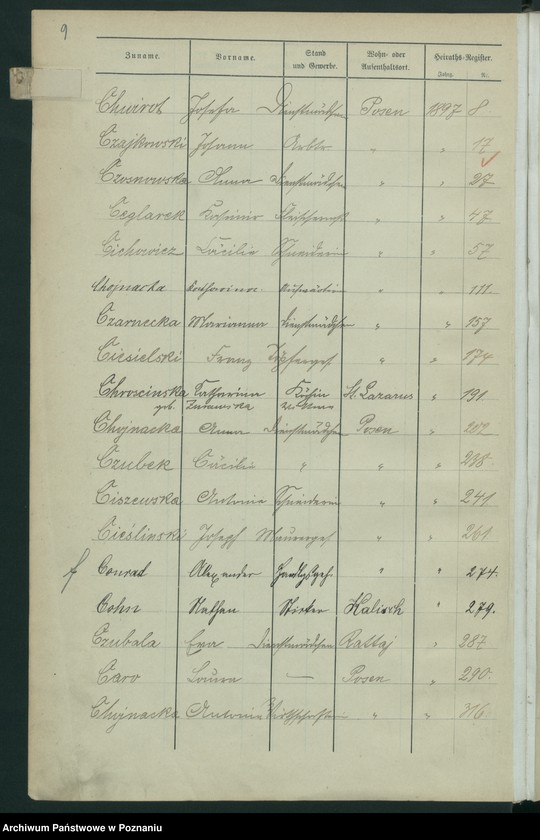 9
Zuname. Vorname. Stand und Gewerbe. Wohn- oder Aufenthaltsort. Heiraths-Register.
Jahrg. Nr.
Chwirot Josefa Dienstmädchen Posen 1897 8
Czajkowski Johann Arbtr " " 17
Czosnowska Anna Dienstmädchen " " 27
Ceglarek Kasimir " " 47
Cichowicz Cäcilie Schneiderin " " 57
Chojnacka Katharina Aufwärterin " " 111
Czarnecka Marianna Dienstmädchen " " 157
Ciesielski Franz Töpferges " " 174
Chroscinska Katharina Köchin St. Lazarus " 191
geb. Zurawska
Chojnacka Anna Dienstmädchen Posen " 202
Czubek Cäcilie " " " 238.
Ciszewska Antonie Schneiderin " " 241
Cieślinski Joseph Maurerges " " 261
f Conrad Alexander Handlgsgeh. " " 274.
Cohn Nathan Kalisch " 279.
Czubala Eva Dienstmädchen Rattaj " 287
Caro Laura — Posen " 290.
Chojnacka Antonie " " 316
Archiwum Państwowe w Poznaniu